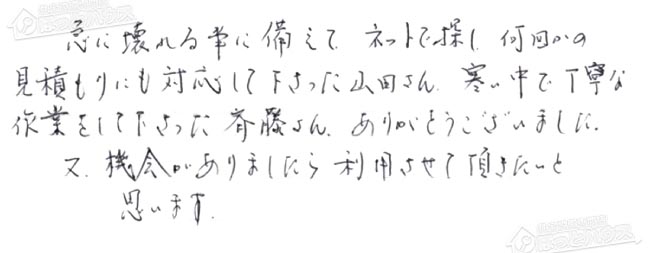 急に壊れる常に備えて ネットで探し 何回かの
見積もりにも対応して下さった山田さん、寒い中で丁寧な
作業をして下さった斉藤さん、ありがとうございました。
又、機会がありましたら利用させて頂きたいと
思います。